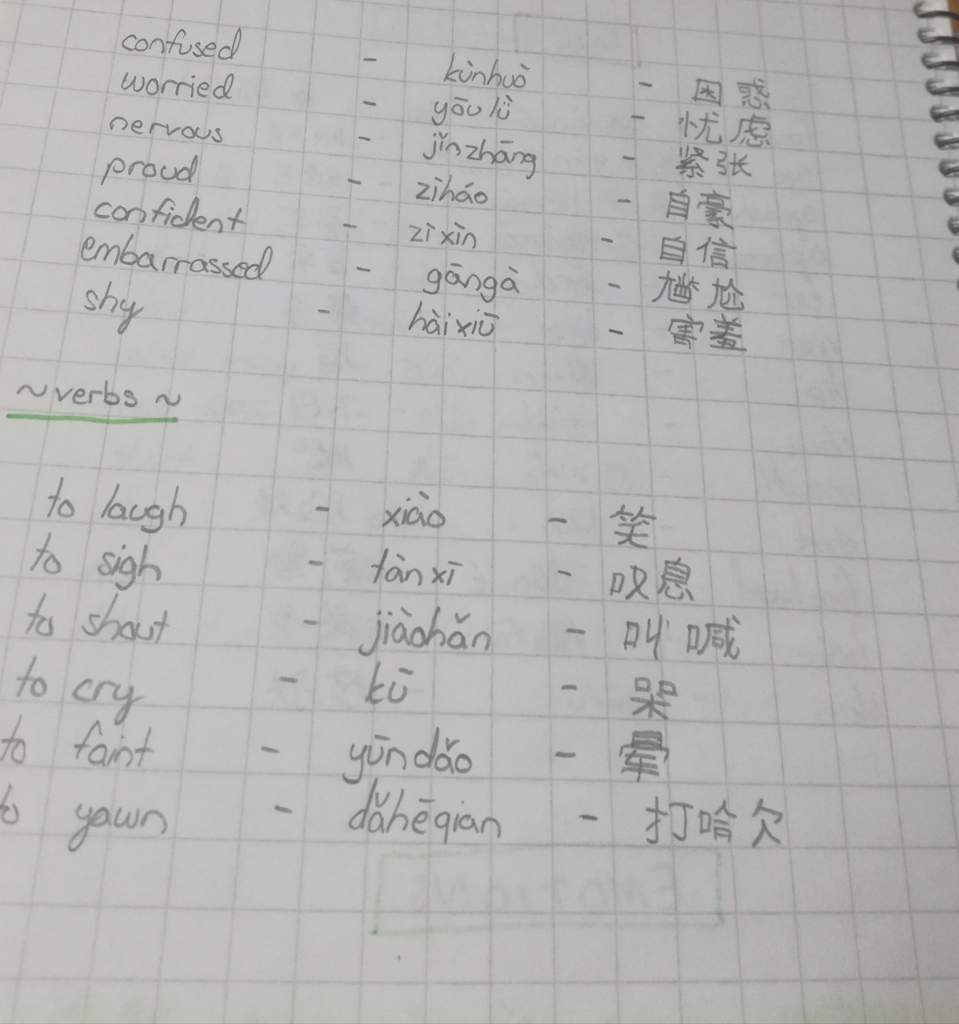 confused - kùnhuò - 困惑
worried - yōulǜ - 忧虑
nervous - jǐnzhāng - 紧张
proud - zìháo - 自豪
confident - zìxìn - 自信
embarrassed - gāngà - 尴尬
shy - hàixiū - 害羞
~verbs~
to laugh - xiào - 笑
to sigh - tànxī - 叹息
to shout - jiàohǎn - 叫喊
to cry - kū - 哭
to faint - yūndǎo - 晕
to yawn - dǎhēqian - 打哈欠